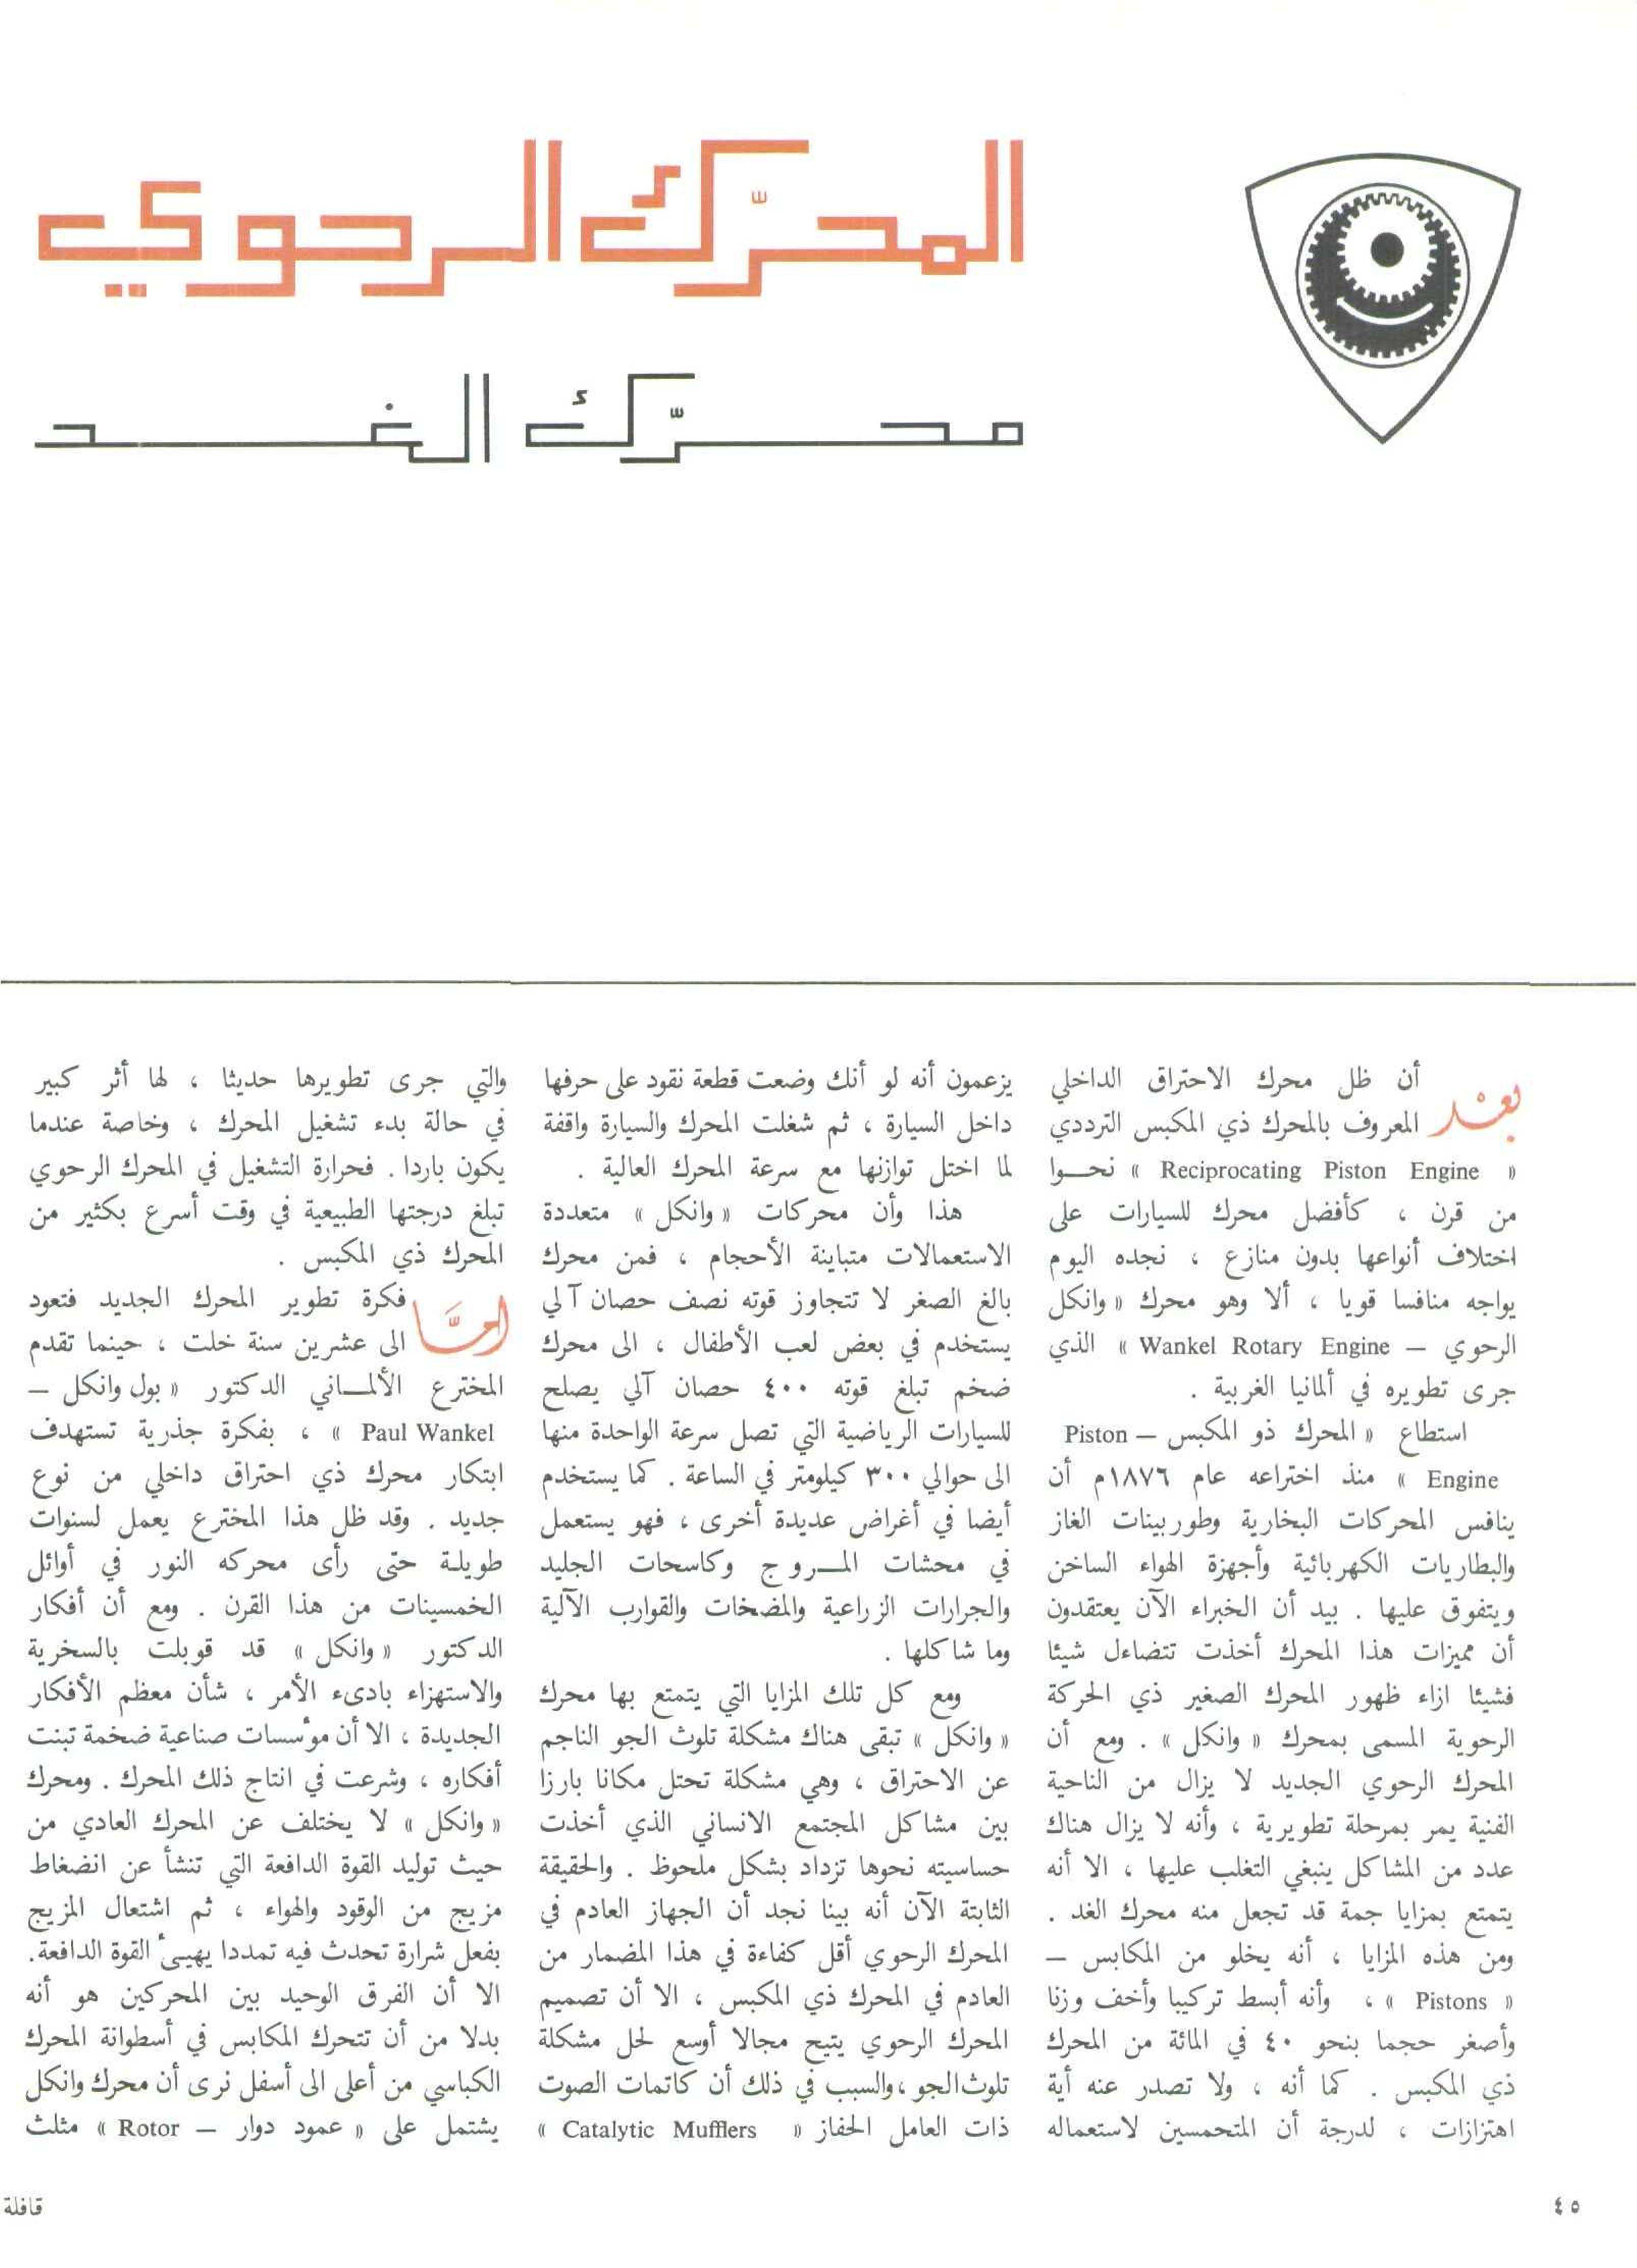 المحرّك الرحوي
محرّك الغد
بعْد أن ظل محرك الاحتراق الداخلي
المعروف بالمحرك ذي المكبس الترددي
« Reciprocating Piston Engine » نحــوا
من قرن ، كأفضل محرك للسيارات على
اختلاف أنواعها بدون منازع ، نجده اليوم
يواجه منافسا قويا ، ألا وهو محرك « وانكل
الرحوي — Wankel Rotary Engine » الذي
جرى تطويره في ألمانيا الغربية .
استطاع « المحرك ذو المكبس — Piston
Engine » منذ اختراعه عام ١٨٧٦م أن
ينافس المحركات البخارية وطوربينات الغاز
والبطاريات الكهربائية وأجهزة الهواء الساخن
ويتفوق عليها . بيد أن الخبراء الآن يعتقدون
أن مميزات هذا المحرك أخذت تتضاءل شيئا
فشيئا ازاء ظهور المحرك الصغير ذي الحركة
الرحوية المسمى بمحرك « وانكل » . ومع أن
المحرك الرحوي الجديد لا يزال من الناحية
الفنية يمر بمرحلة تطويرية ، وأنه لا يزال هناك
عدد من المشاكل ينبغي التغلب عليها ، الا أنه
يتمتع بمزايا جمة قد تجعل منه محرك الغد .
ومن هذه المزايا ، أنه يخلو من المكابس —
« Pistons » ، وأنه أبسط تركيبا وأخف وزنا
وأصغر حجما بنحو ٤٠ في المائة من المحرك
ذي المكبس . كما أنه ، ولا تصدر عنه أية
اهتزازات ، لدرجة أن المتحمسين لاستعماله
يزعمون أنه لو أنك وضعت قطعة نقود على حرفها
داخل السيارة ، ثم شغلت المحرك والسيارة واقفة
لما اختل توازنها مع سرعة المحرك العالية .
هذا وأن محركات « وانكل » متعددة
الاستعمالات متباينة الأحجام ، فمن محرك
بالغ الصغر لا تتجاوز قوته نصف حصان آلي
يستخدم في بعض لعب الأطفال ، الى محرك
ضخم تبلغ قوته ٤٠٠ حصان آلي يصلح
للسيارات الرياضية التي تصل سرعة الواحدة منها
الى حوالي ٣٠٠ كيلومتر في الساعة . كما يستخدم
أيضا في أغراض عديدة أخرى ، فهو يستعمل
في محشات المــروج وكاسحات الجليد
والجرارات الزراعية والمضخات والقوارب الآلية
وما شاكلها .
ومع كل تلك المزايا التي يتمتع بها محرك
« وانكل » تبقى هناك مشكلة تلوث الجو الناجم
عن الاحتراق ، وهي مشكلة تحتل مكانا بارزا
بين مشاكل المجتمع الانساني الذي أخذت
حساسيته نحوها تزداد بشكل ملحوظ . والحقيقة
الثابتة الآن أنه بينا نجد أن الجهاز العادم في
المحرك الرحوي أقل كفاءة في هذا المضمار من
العادم في المحرك ذي المكبس ، الا أن تصميم
المحرك الرحوي يتيح مجالا أوسع لحل مشكلة
تلوث الجو ، والسبب في ذلك أن كاتمات الصوت
ذات العامل الحفاز « Catalytic Mufflers »
والتي جرى تطويرها حديثا ، لها أثر كبير
في حالة بدء تشغيل المحرك ، وخاصة عندما
يكون باردا . فحرارة التشغيل في المحرك الرحوي
تبلغ درجتها الطبيعية في وقت أسرع بكثير من
المحرك ذي المكبس .
امَّا فكرة تطوير المحرك الجديد فتعود
الى عشرين سنة خلت ، حينما تقدم
المخترع الألمــاني الدكتور « بول وانكل —
Paul Wankel » ، بفكرة جذرية تستهدف
ابتكار محرك ذي احتراق داخلي من نوع
جديد . وقد ظل هذا المخترع يعمل لسنوات
طويلة حتى رأى محركه النور في أوائل
الخمسينات من هذا القرن . ومع أن أفكار
الدكتور « وانكل » قد قوبلت بالسخرية
والاستهزاء بادىء الأمر ، شأن معظم الأفكار
الجديدة ، الا أن مؤسسات صناعية ضخمة تبنت
أفكاره ، وشرعت في انتاج ذلك المحرك . ومحرك
« وانكل » لا يختلف عن المحرك العادي من
حيث توليد القوة الدافعة التي تنشأ عن انضغاط
مزيج من الوقود والهواء ، ثم اشتعال المزيج
بفعل شرارة تحدث فيه تمددا يهيىٔ القوة الدافعة.
الا أن الفرق الوحيد بين المحركين هو أنه
بدلا من أن تتحرك المكابس في أسطوانة المحرك
الكباسي من أعلى الى أسفل نرى أن محرك وانكل
يشتمل على « عمود دوار — Rotor » مثلث
٤٥
قافلة